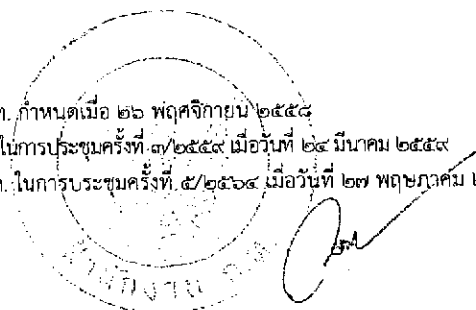 ท. กำหนดเมื่อ ๒๖ พฤศจิกายน ๒๕๕๘
ในการประชุมครั้งที่ ๓/๒๕๕๙ เมื่อวันที่ ๒๔ มีนาคม ๒๕๕๙
ในการประชุมครั้งที่ ๕/๒๕๖๔ เมื่อวันที่ ๒๗ พฤษภาคม ๒
สำนักงาน ก.ท.